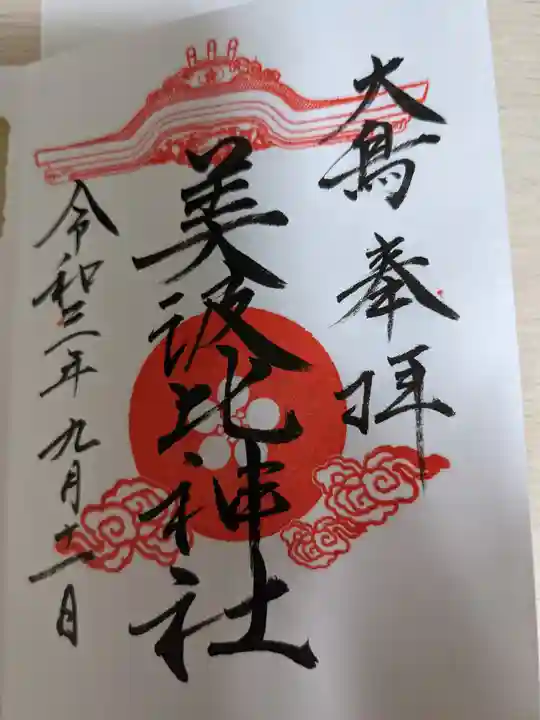 大鳥 奉拝
美波比神社
令和三年九月十一日